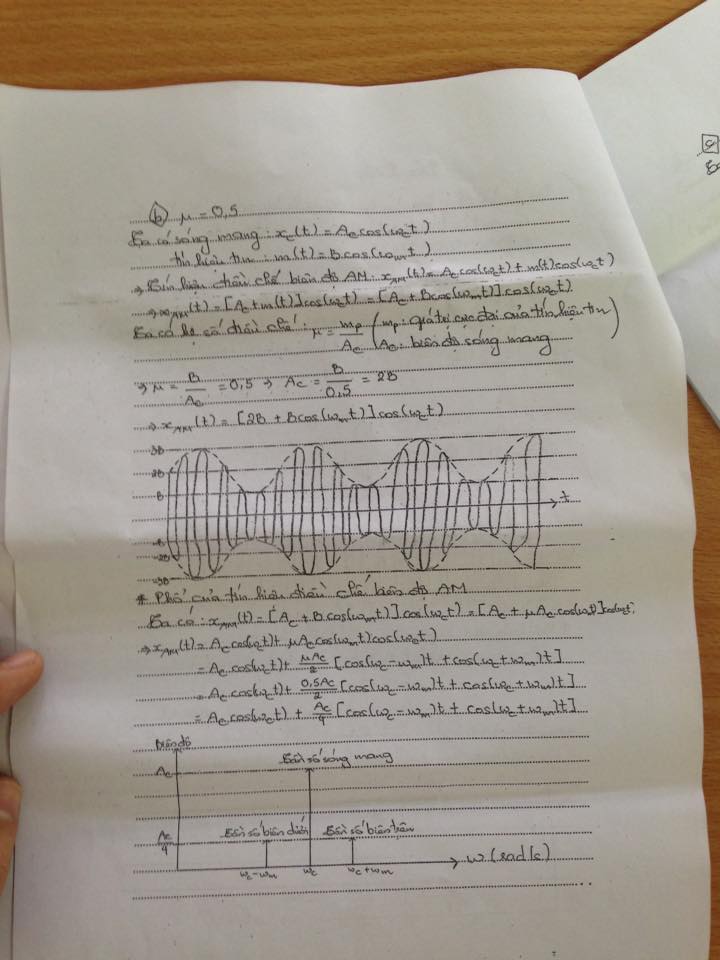 (b) μ = 0,5
Ta có sóng mang : x_c(t) = A_c cos(ω_c t)
tín hiệu tin : m(t) = B cos(ω_m t)
⇒ Tín hiệu điều chế biên độ AM : x_AM(t) = A_c cos(ω_c t) + m(t) cos(ω_c t)
⇒ x_AM(t) = [A_c + m(t)] cos(ω_c t) = [A_c + B cos(ω_m t)] cos(ω_c t)
Ta có hệ số điều chế : μ = m_p / A_c (m_p : giá trị cực đại của tín hiệu tin
A_c : biên độ sóng mang)
⇒ μ = B / A_c = 0,5 ⇒ A_c = B / 0,5 = 2B
⇒ x_AM(t) = [2B + B cos(ω_m t)] cos(ω_c t)
3B
2B
B
t
-B
-2B
-3B
* Phổ của tín hiệu điều chế biên độ AM
Ta có : x_AM(t) = [A_c + B cos(ω_m t)] cos(ω_c t) = [A_c + μA_c cos(ω_m t)] cos(ω_c t)
⇒ x_AM(t) = A_c cos(ω_c t) + μA_c cos(ω_m t) cos(ω_c t)
= A_c cos(ω_c t) + μA_c / 2 [cos(ω_c - ω_m)t + cos(ω_c + ω_m)t]
= A_c cos(ω_c t) + 0,5A_c / 2 [cos(ω_c - ω_m)t + cos(ω_c + ω_m)t]
= A_c cos(ω_c t) + A_c / 4 [cos(ω_c - ω_m)t + cos(ω_c + ω_m)t]
Biên độ
Tần số sóng mang
A_c
A_c / 4
Tần số biên dưới
Tần số biên trên
ω (rad/s)
ω_c - ω_m
ω_c
ω_c + ω_m